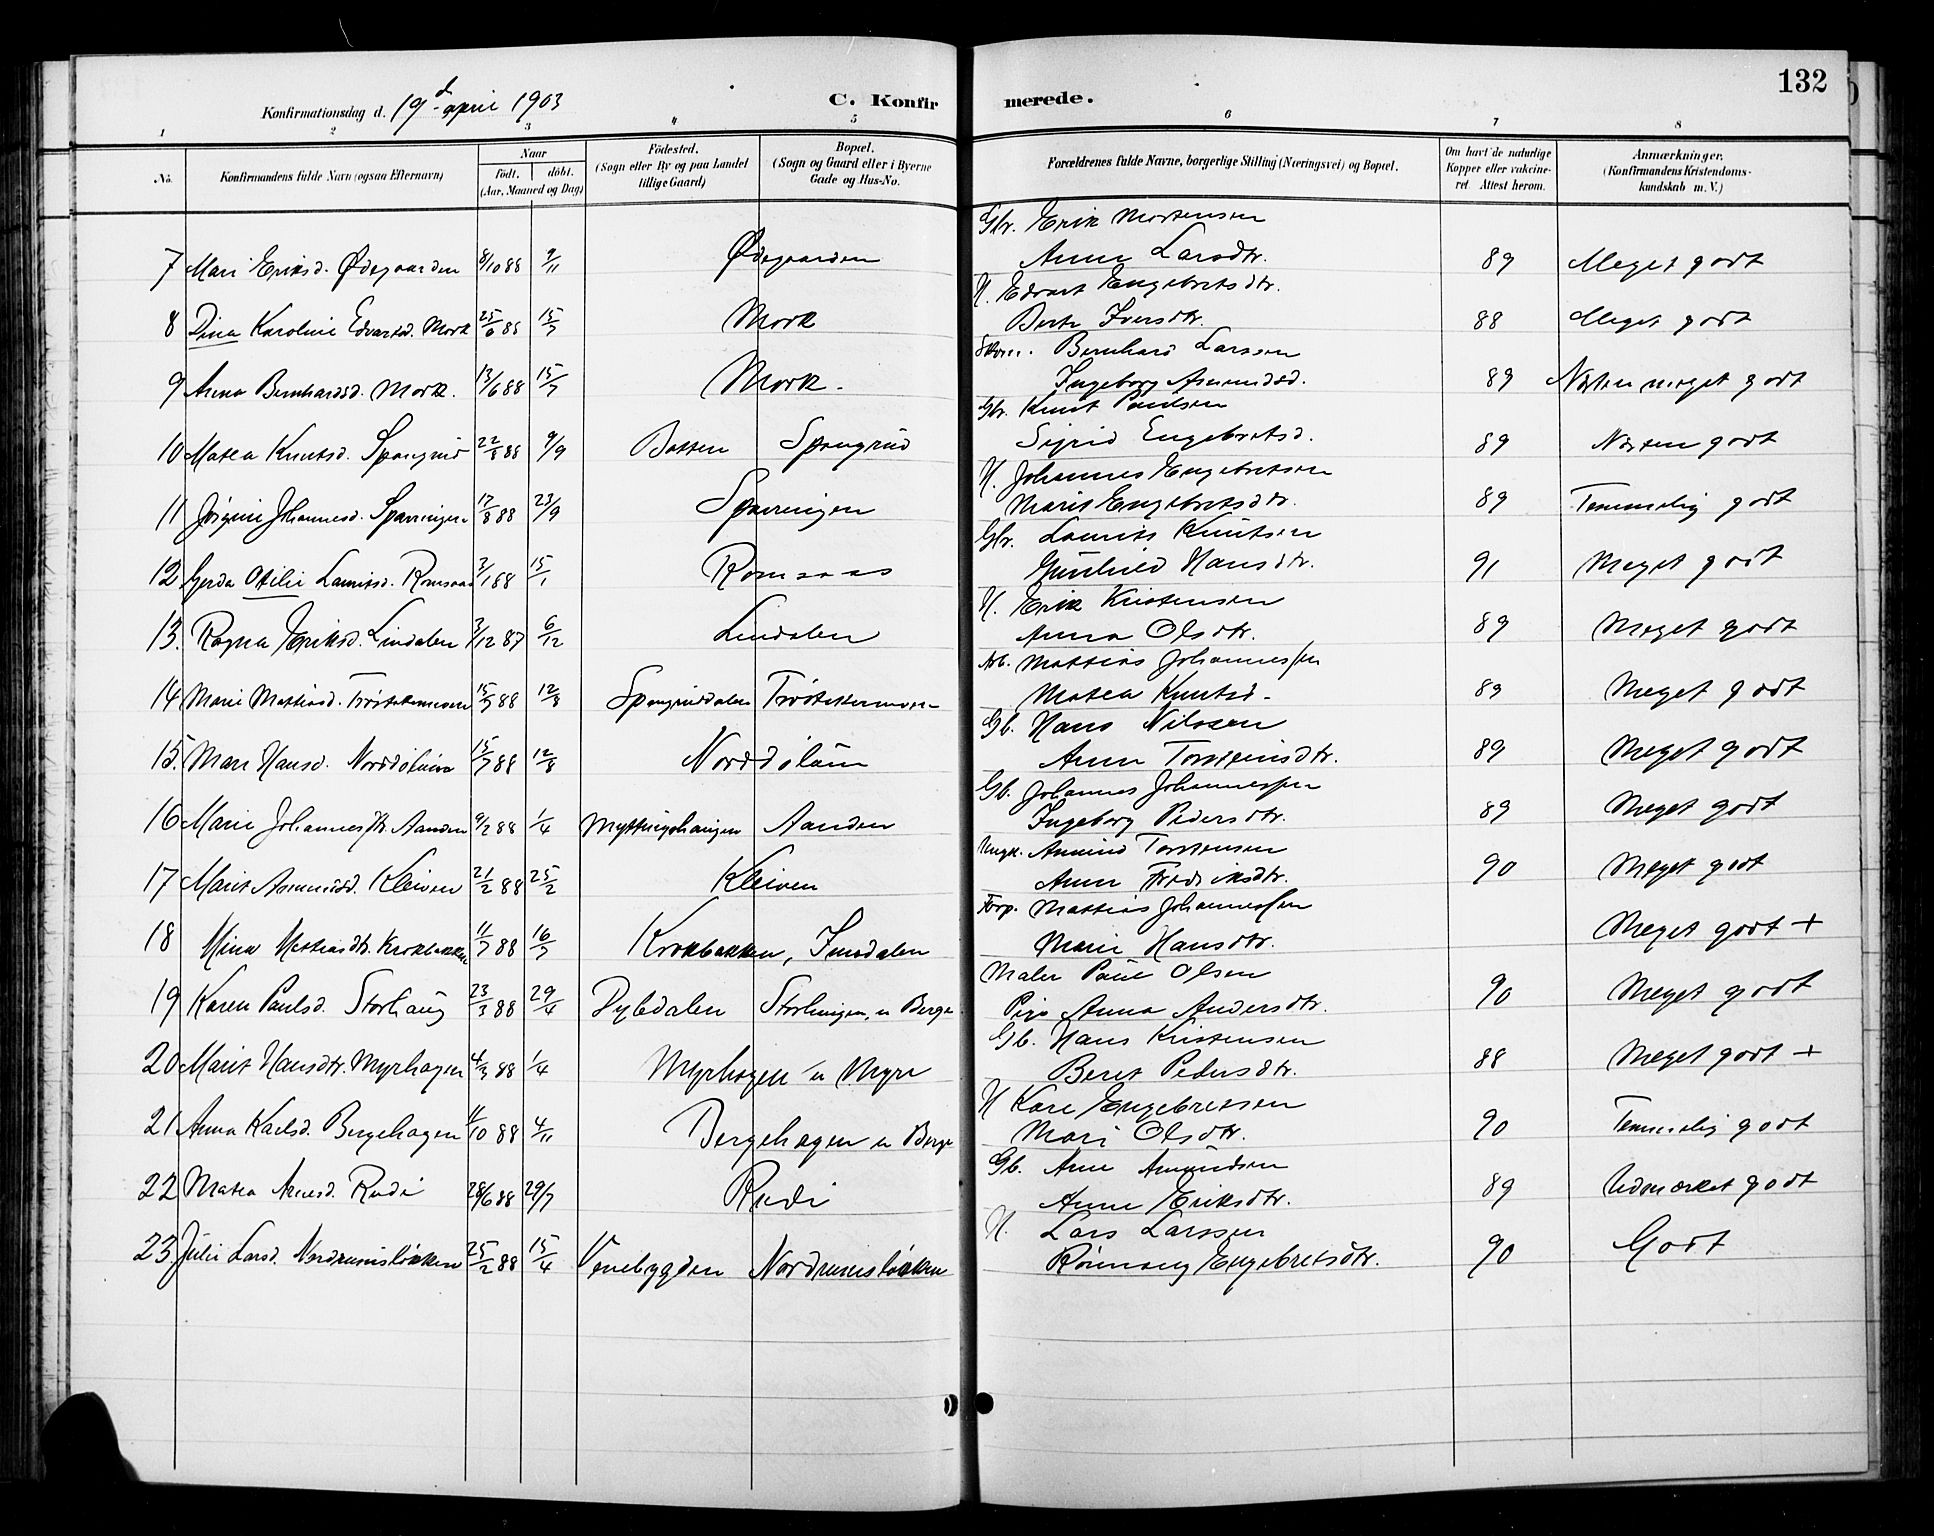 132
Konfirmationsdag d. 19d april 1903
C. Konfirmerede.
1 2 3 4 5 6 7 8
No.
Konfirmandens fulde Navn (ogsaa Efternavn)
Naar
födt. döbt.
(Aar, Maaned og Dag)
Födested.
(Sogn eller By og paa Landet tillige Gaard)
Bopæl.
(Sogn og Gaard eller i Byerne Gade og Hus-No.
Forældrenes fulde Navne, borgerlige Stilling (Næringsvei) og Bopæl.
Om havt de naturlige Kopper eller vakcineret. Attest herom.
Anmærkninger.
(Konfirmandens Kristendomskundskab m. V.)
Gbr. Erik Mortensen
7 Mari Eriksd. Ødegaarden 8/10 88 9/11 Ødegaarden Anne Larsdtr. 89 Meget godt
H. Edvart Engebretsdtr.
8 Dina Karoline Edvartsd. Mork 25/6 88 15/7 Mork Berte Iversdtr. 88 Meget godt
Bernhard Larssen
9 Anna Bernhardsd. Mork. 13/6 88 15/7 Mork. Ingeborg Amundsd. 89 Næsten meget godt
Gbr. Knut Paulsen
10 Matea Knutsd. Spangrud 22/8 88 9/9 Botten Spangrud Sigrid Engebretsd. 89 Næsten godt
H. Johannes Engebretsen
11 Jørgine Johannesd. Spærringen 17/8 88 23/9 Spærringen Marit Engebretsdtr. 89 Temmelig godt
Gbr. Laurits Knutsen
12 Gerda Otilie Lauritsd. Romsaas 3/1 88 15/1 Romsaas Gunhild Hansdtr. 91 Meget godt
H. Erik Kristensen
13. Ragna Eriksd. Lindalen 3/12 87 6/12 Lindalen Anna Olsdtr. 89 Meget godt
Arb. Mattias Johannessen
14 Marie Mattiasd. 15/7 88 12/8 Spangruddalen Matea Knutsd. 89 Meget godt
Gb. Hans Nilssen
15. Mari Hansd. 15/7 88 12/8 Anne Torsteinsdtr. 89 Meget godt
Gb. Johannes Johannessen
16 Marie Johannesdtr. Aanden 9/2 88 1/4 Myttingshaugen Aanden Ingeborg Pedersdtr. 89 Meget godt
Ungk. Amund Torstensen
17 Marit Amundsd. Kleiven 21/2 88 25/2 Kleiven Anne Fredriksdtr. 90 Meget godt
Forp. Mattias Johannessen
18 Mina Mattiasdtr. Krokbakken 11/7 88 16/7 Krokbakken, Imsdalen Marie Hansdtr. Meget godt +
Maler Paul Olsen
19 Karen Paulsd. Storhaug 23/3 88 29/4 Dybdalen Storhaugen, u Berge Pige Anna Andersdtr. 90 Meget godt
Gb. Hans Kristensen
20 Marit Hansdtr. Myrhagen 4/3 88 1/4 Myrhagen u Myre Beret Pedersdtr. 88 Meget godt +
H Karl Engebretsen
21 Anna Karlsd. Bergehagen 11/10 88 4/11 Bergehagen u Berge Mari Olsdtr. 90 Temmelig godt
Gb. Arne Amundsen
22 Matea Arnesd. Rudi 28/6 88 29/7 Rudi Anne Eriksdtr. 89 Udmærket godt
H. Lars Larssen
23 Julie Larsd. Nordrumsløkken 25/2 88 15/4 Venebygden Nordrumsløkken Rønnaug Engebretsdtr. 90 Godt